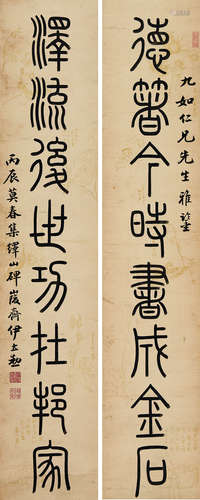 九如仁兄先生雅鑒
德箸今時書成金石
澤流後世功在邦家
丙辰莫春集繹山碑峻齋伊立勳